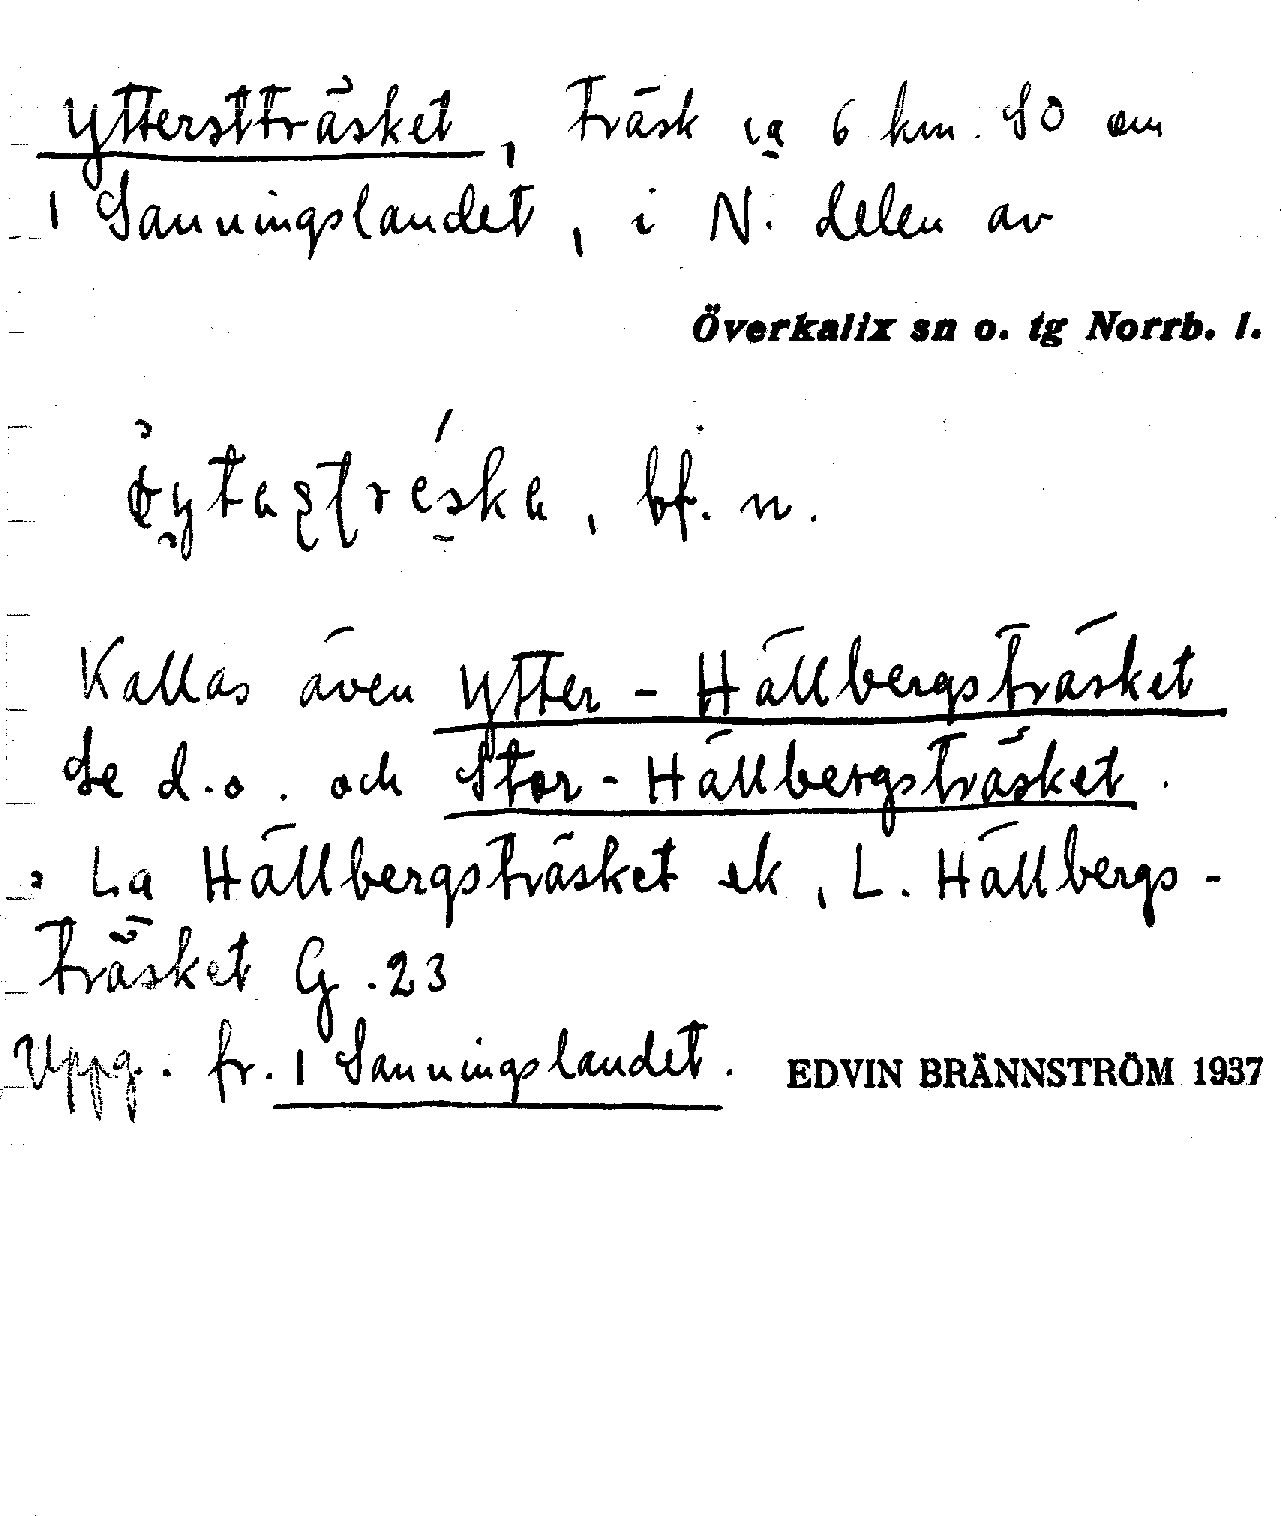 Ytterstträsket, träsk ca 6 km. SO om
1 Sanningslandet, i N. delen av
Överkalix sn o. tg Norrb. l.
bf. n.
Kallas även Ytter-Hällbergsträsket
Se d.o. och Stor-Hällbergsträsket.
La Hällbergsträsket ek, L. Hällbergs-
träsket G. 23
Uppg. fr. 1 Sanningslandet. EDVIN BRÄNNSTRÖM 1937